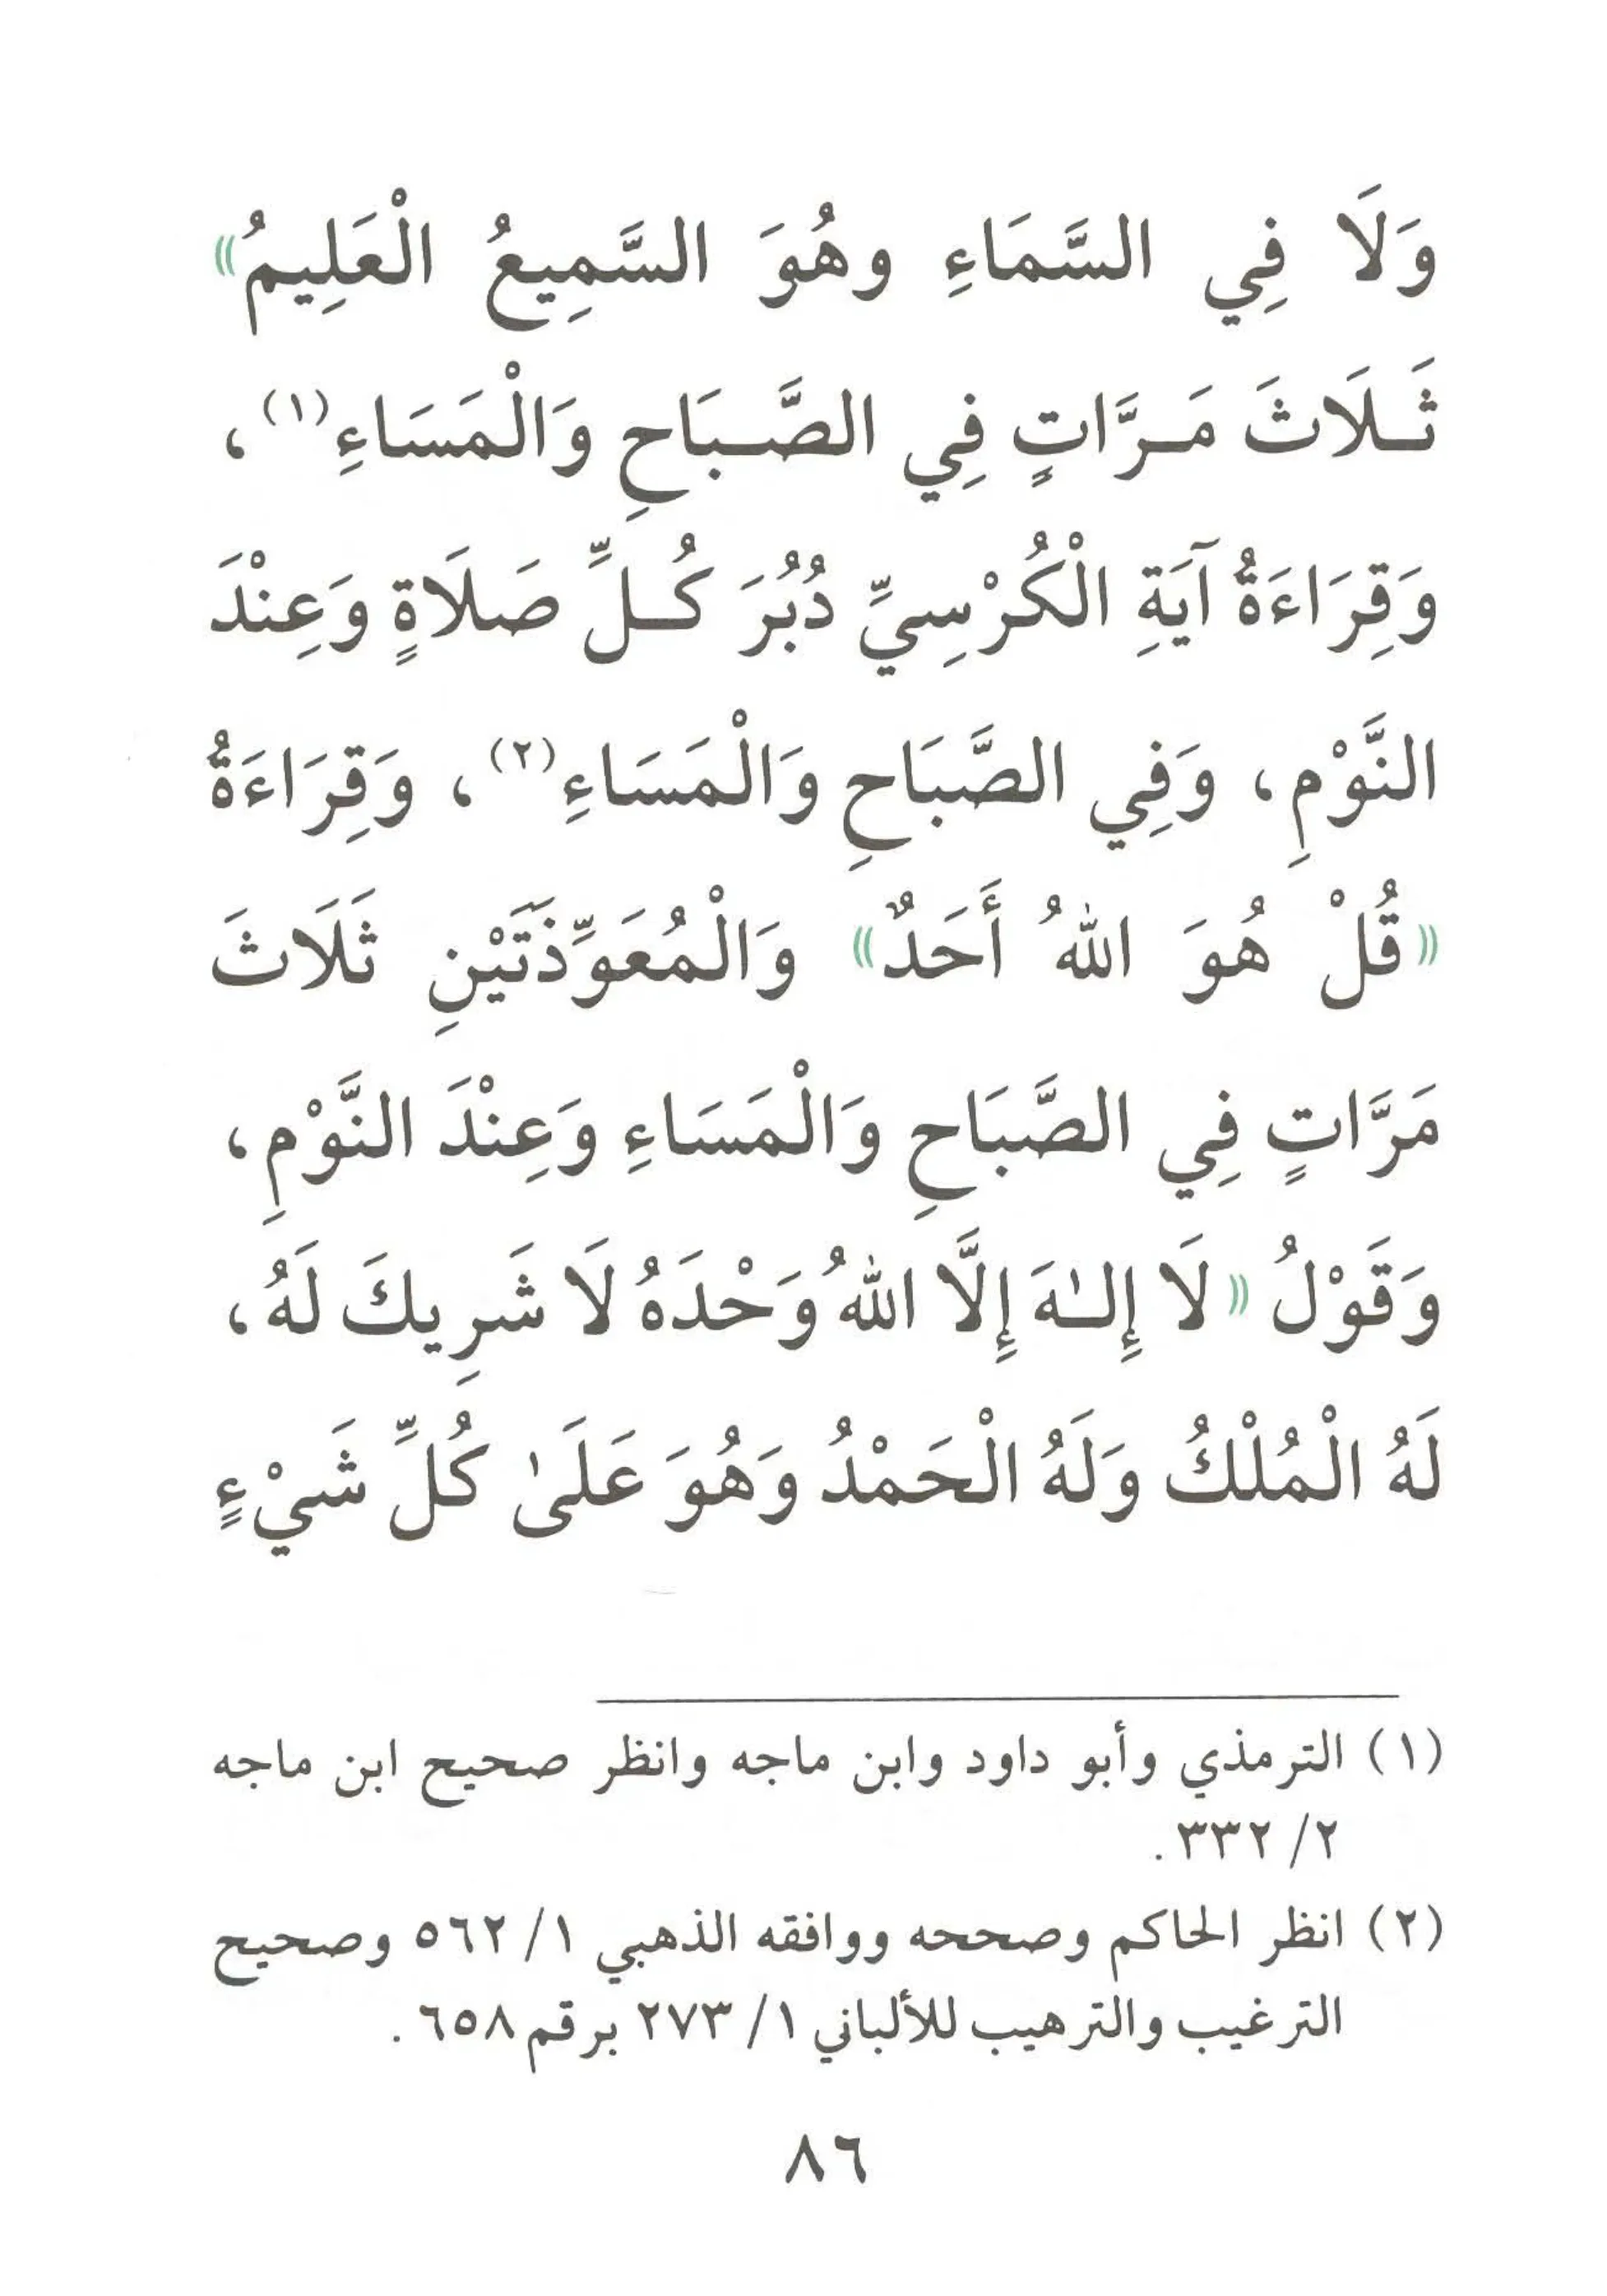 وَلَا فِي السَّمَاءِ وهُوَ السَّمِيعُ الْعَلِيمُ»
ثَـلَاثَ مَـرَّاتٍ فِي الصَّـبَاحِ وَالْمَسَاءِ(١)،
وَقِرَاءَةُ آيَةِ الْكُرْسِيِّ دُبُرَ كُـلِّ صَلَاةٍ وَعِنْدَ
النَّوْمِ، وَفِي الصَّبَاحِ وَالْمَسَاءِ(٢)، وَقِرَاءَةُ
«قُلْ هُوَ اللهُ أَحَدٌ» وَالْمُعَوِّذَتَيْنِ ثَلَاثَ
مَرَّاتٍ فِي الصَّبَاحِ وَالْمَسَاءِ وَعِنْدَ النَّوْمِ،
وَقَوْلُ «لَا إِلـٰهَ إِلَّا اللهُ وَحْدَهُ لَا شَرِيكَ لَهُ،
لَهُ الْمُلْكُ وَلَهُ الْحَمْدُ وَهُوَ عَلَىٰ كُلِّ شَيْءٍ
(١) الترمذي وأبو داود وابن ماجه وانظر صحيح ابن ماجه
٢/ ٣٣٢.
(٢) انظر الحاكم وصححه ووافقه الذهبي ١/ ٥٦٢ وصحيح
الترغيب والترهيب للألباني ١/ ٢٧٣ برقم ٦٥٨.
٨٦